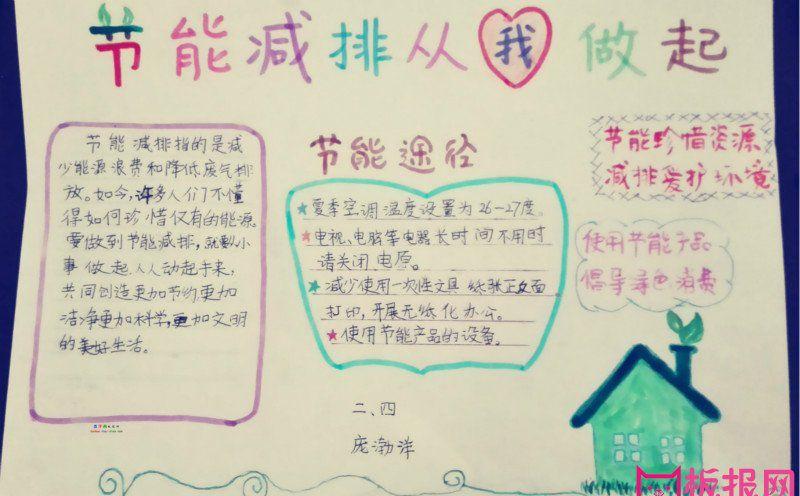 节能减排从我做起
节能减排指的是减
少能源浪费和降低废气排
放。如今,许多人们不懂
得如何珍惜仅有的能源。
要做到节能减排,就要从小
事做起。人人动起手来,
共同创造更加节约更加
洁净更加科学,更加文明
的美好生活。
节能途径
★夏季空调温度设置为26-27度。
★电视、电脑等电器长时间不用时
请关闭电原。
★减少使用一次性文具纸张正反面
打印,开展无纸化办公。
★使用节能产品的设备。
节能珍惜资源
减排爱护环境
使用节能产品
倡导绿色消费
二、四
庞渤洋
板报网